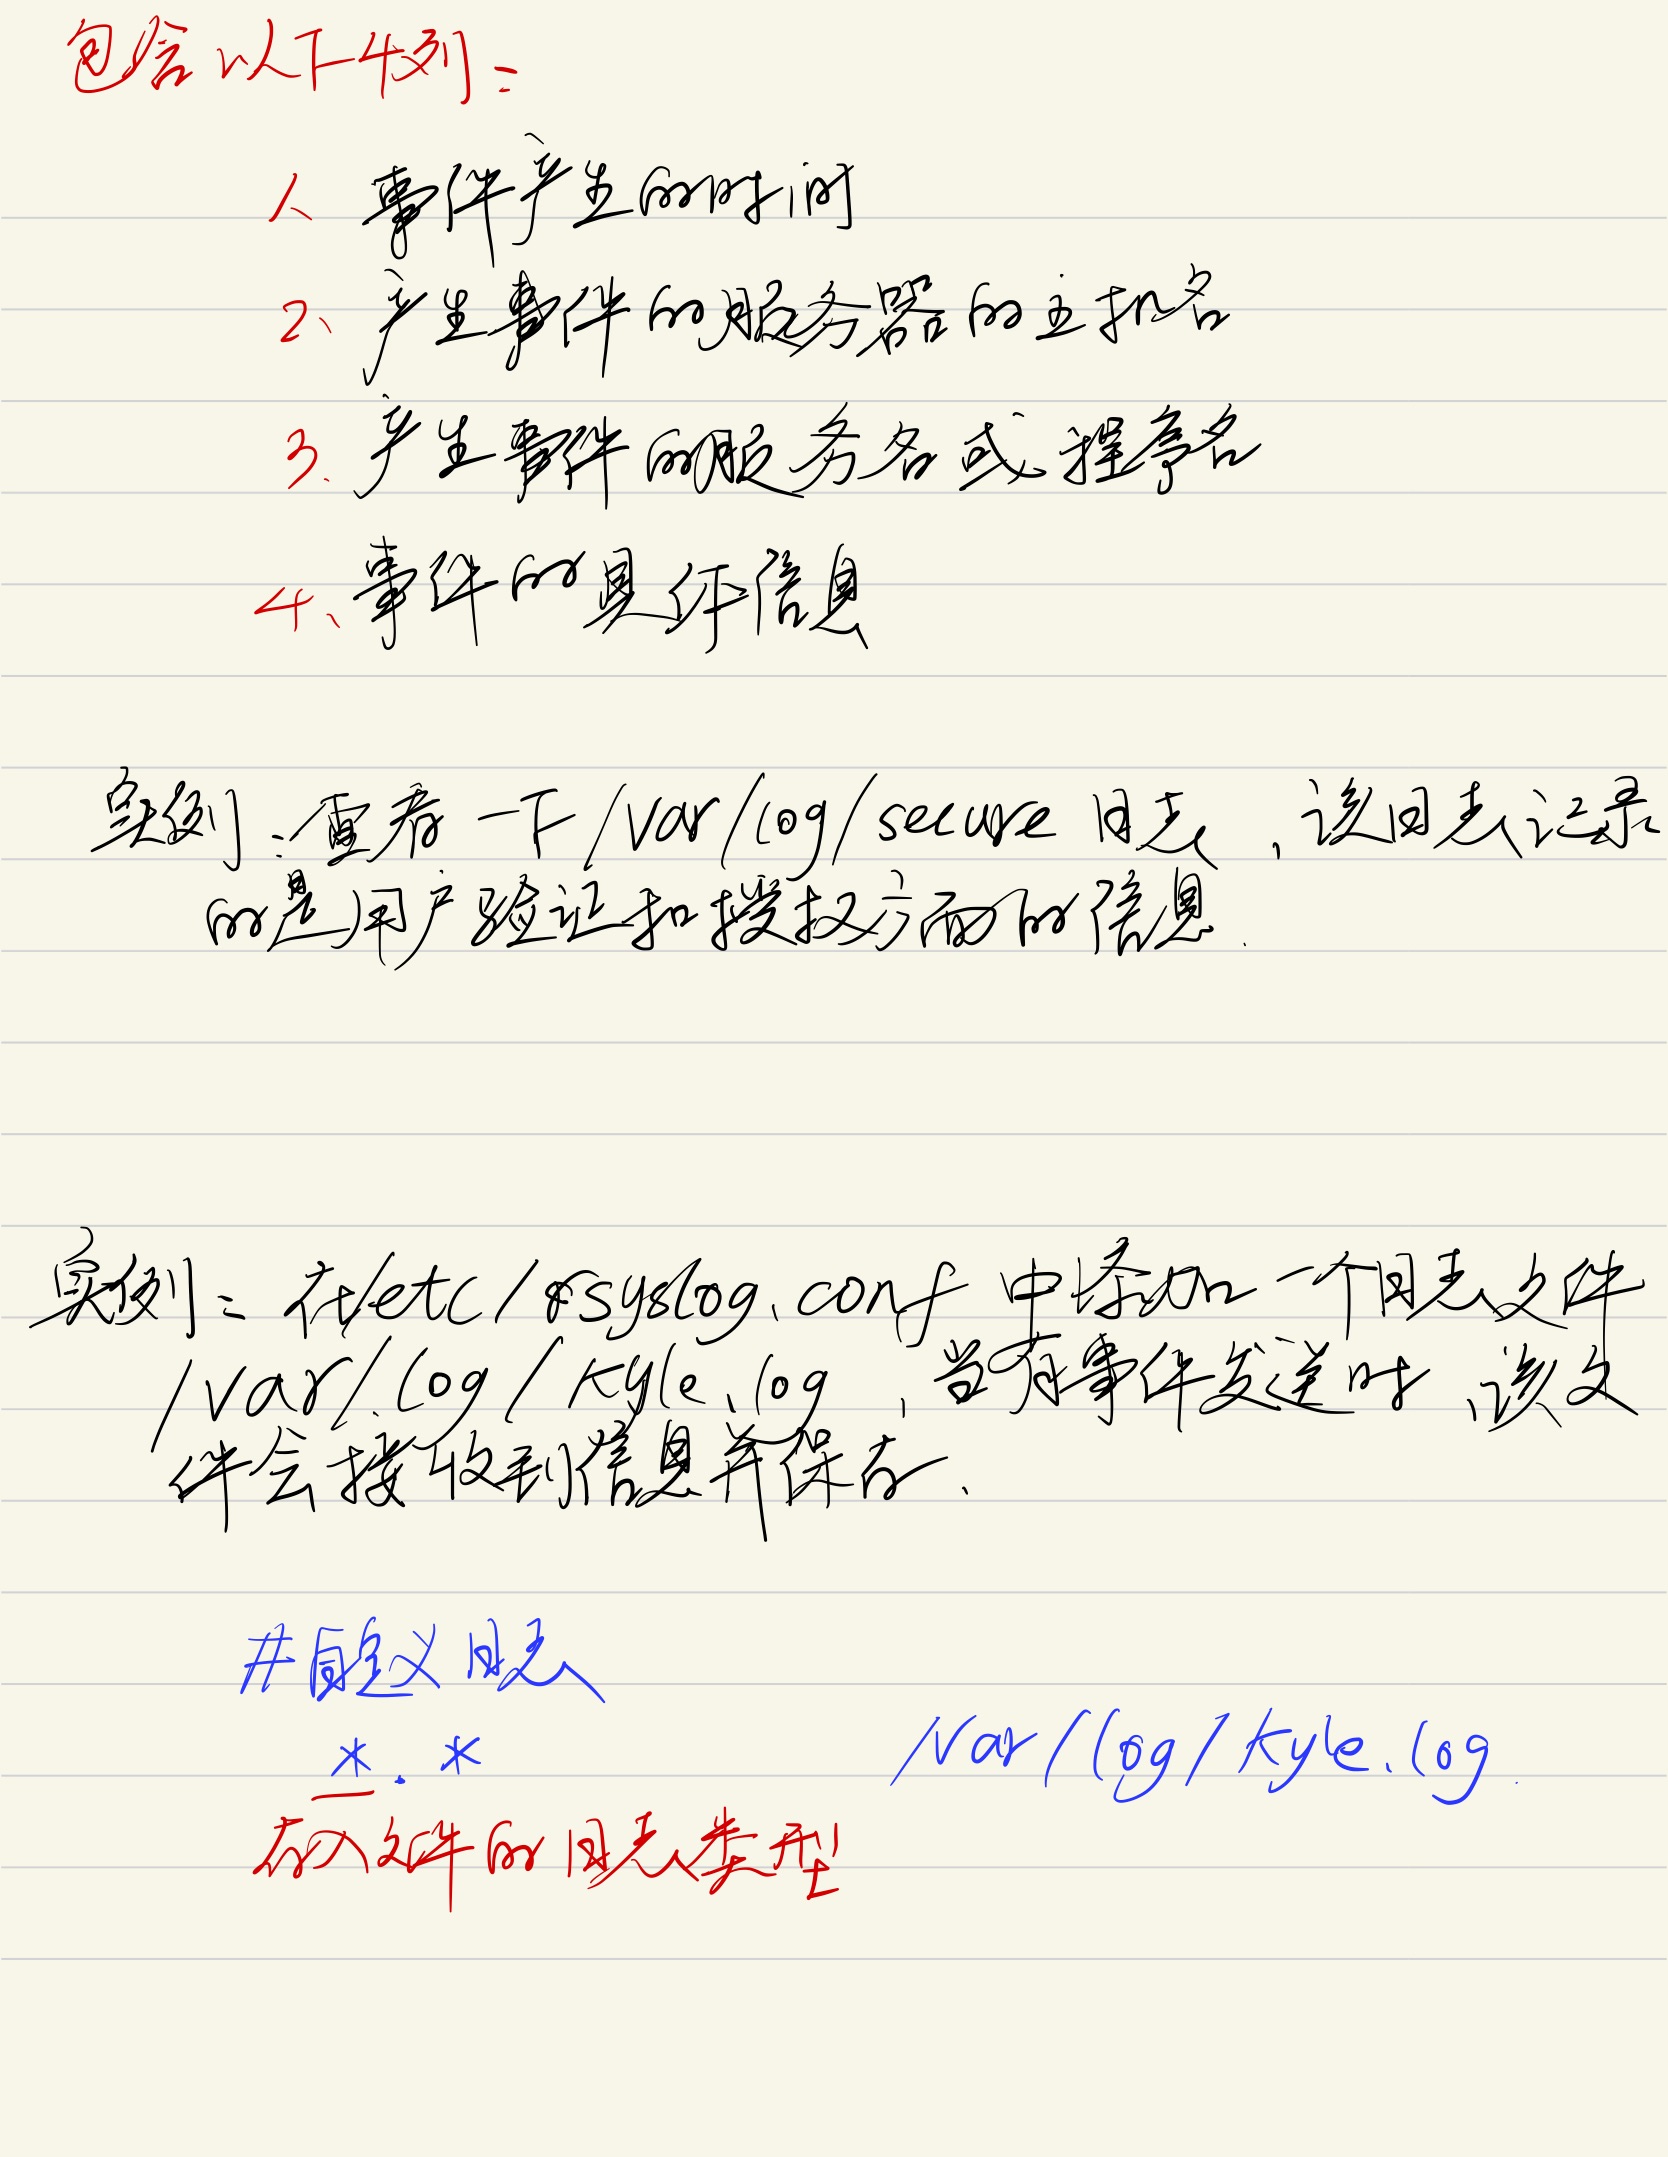 包含以下4列:
1、事件产生的时间
2、产生事件的服务器的主机名
3、产生事件的服务名或程序名
4、事件的具体信息
实例:查看一下/var/log/secure 日志,该日志记录
的是用户验证和授权方面的信息.
实例:在/etc/rsyslog.conf 中添加一个日志文件
/var/log/kyle.log,当有事件发送时,该文
件会接收到信息并保存.
#自定义日志
*.* /var/log/kyle.log
存入文件的日志类型